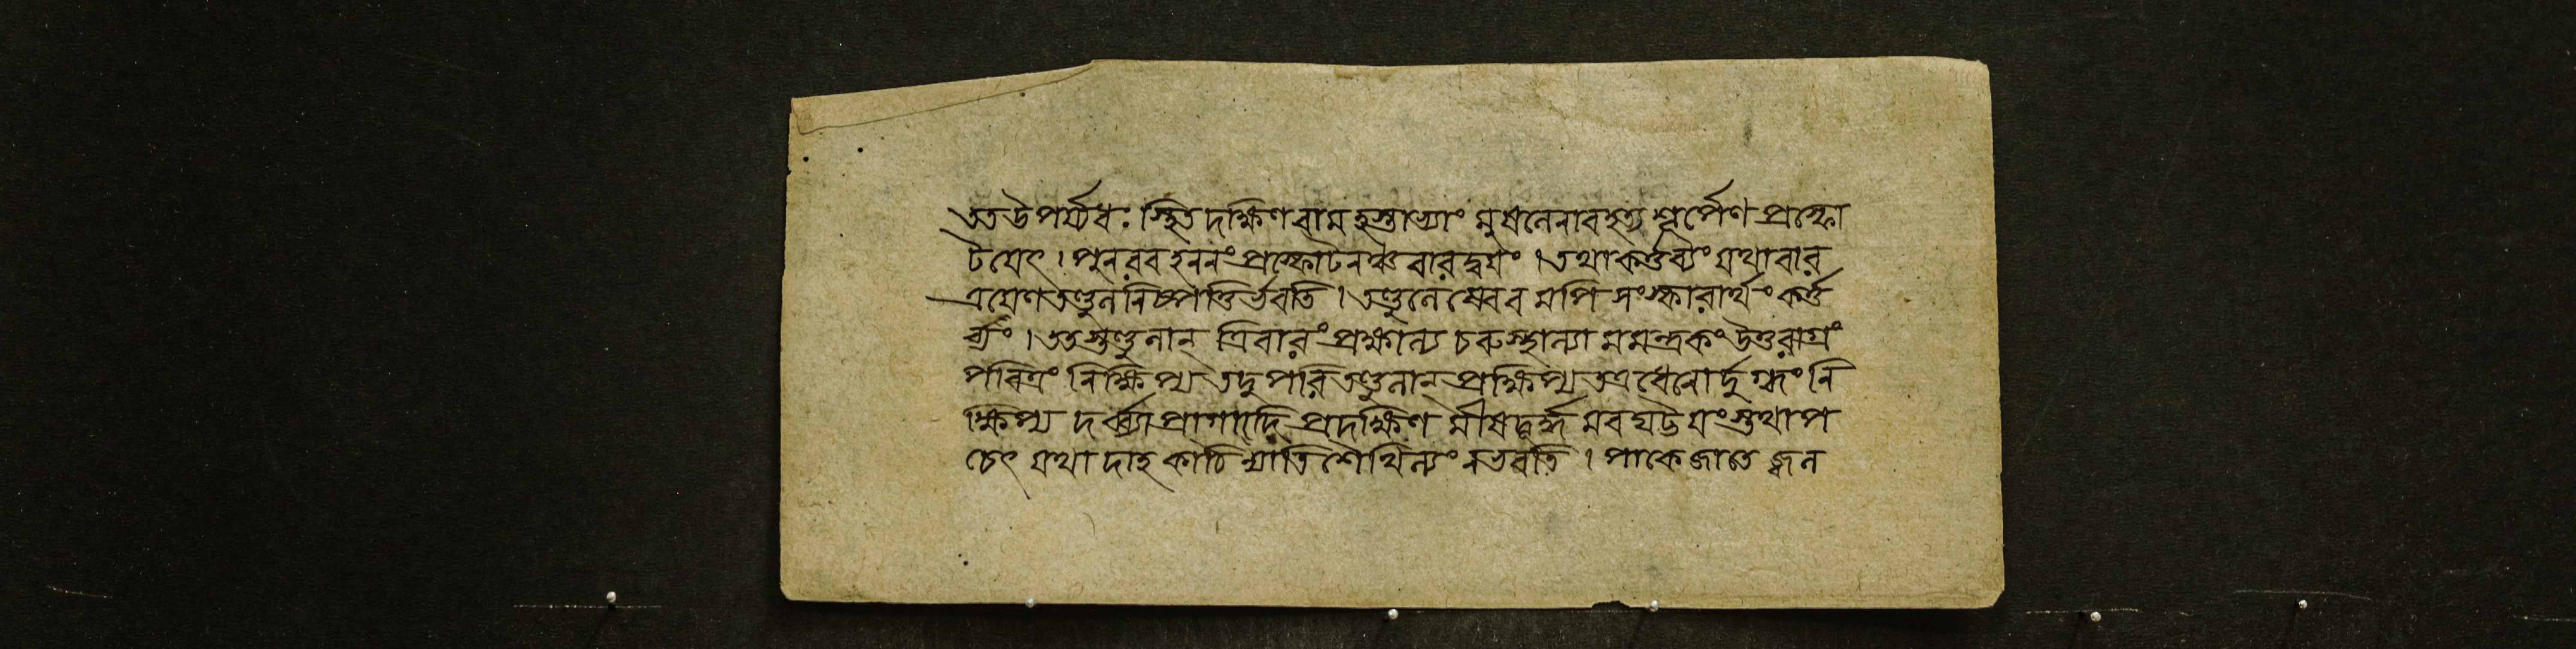 তত উপর্য্যধঃস্থিত দক্ষিণ বামহস্তাভ্যাং মুষলেনাবহত্য শূর্পেণ প্রস্ফো
টয়েৎ। পুনরবহননং প্রস্ফোটনঞ্চ বারদ্বয়ং। তথা কর্ত্তব্যং যথা বার
ত্রয়েণ তণ্ডুলনিষ্পত্তির্ভবতি। তণ্ডুলে ষেবব মপি সংস্কারার্থং কর্ত্ত
ব্যং। ততস্তণ্ডুলান্ ত্রিবারং প্রক্ষাল্য চরুস্থাল্যা মমন্ত্রকং উত্তরাগ্রং
পবিত্রং নিক্ষিপ্য তদুপরি তণ্ডুলান্ প্রক্ষিপ্য তত্র ধেনোর্দুগ্ধং নি
ক্ষিপ্য দর্ব্ব্যা প্রাগাদি প্রদক্ষিণ মীষদূর্দ্ধ মবঘট্টয়ং স্তথা প
চেৎ যথা দাহ কাঠিন্যাতি শৈথিল্যং ন ভবতি। পাকে জাতে জ্বল